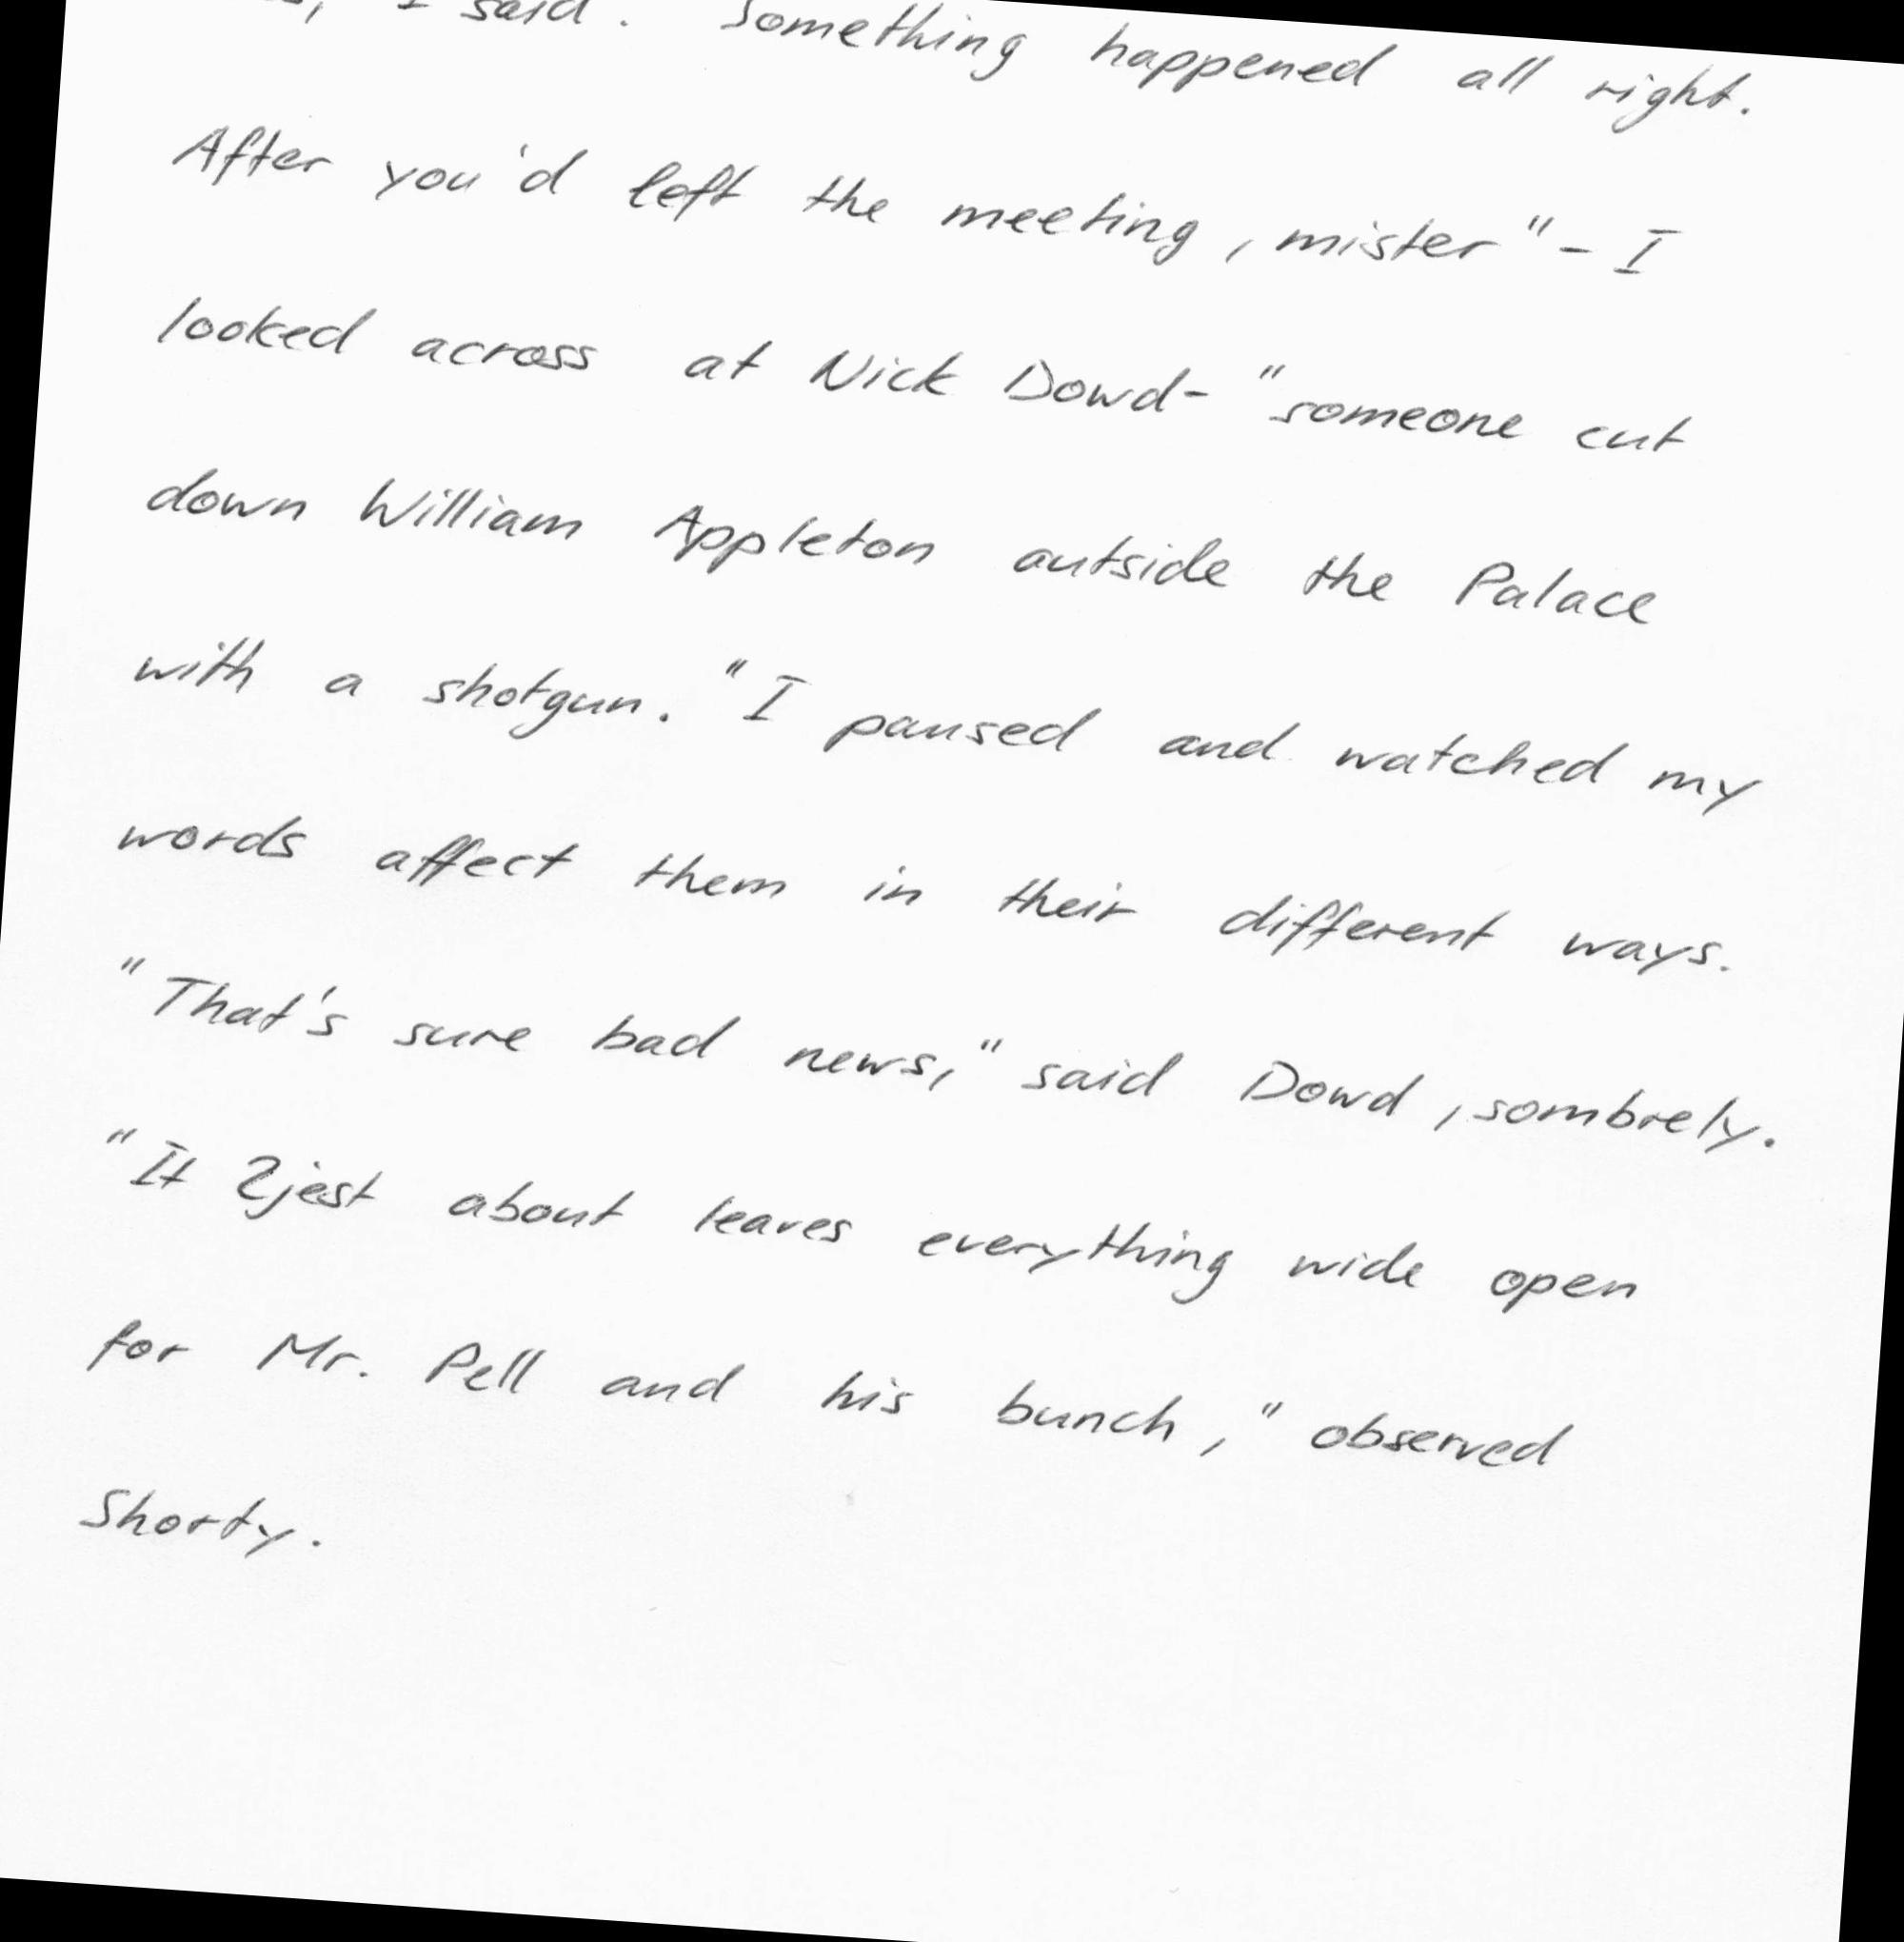 I said. Something happened all right.
After you'd left the meeting, mister" - I
looked across at Nick Dowd - "someone cut
down William Appleton outside the Palace
with a shotgun. "I paused and watched my
words affect them in their different ways.
"That's sure bad news," said Dowd, sombrely.
"It 2jest about leaves everything wide open
for Mr. Pell and his bunch," observed
Shorty.